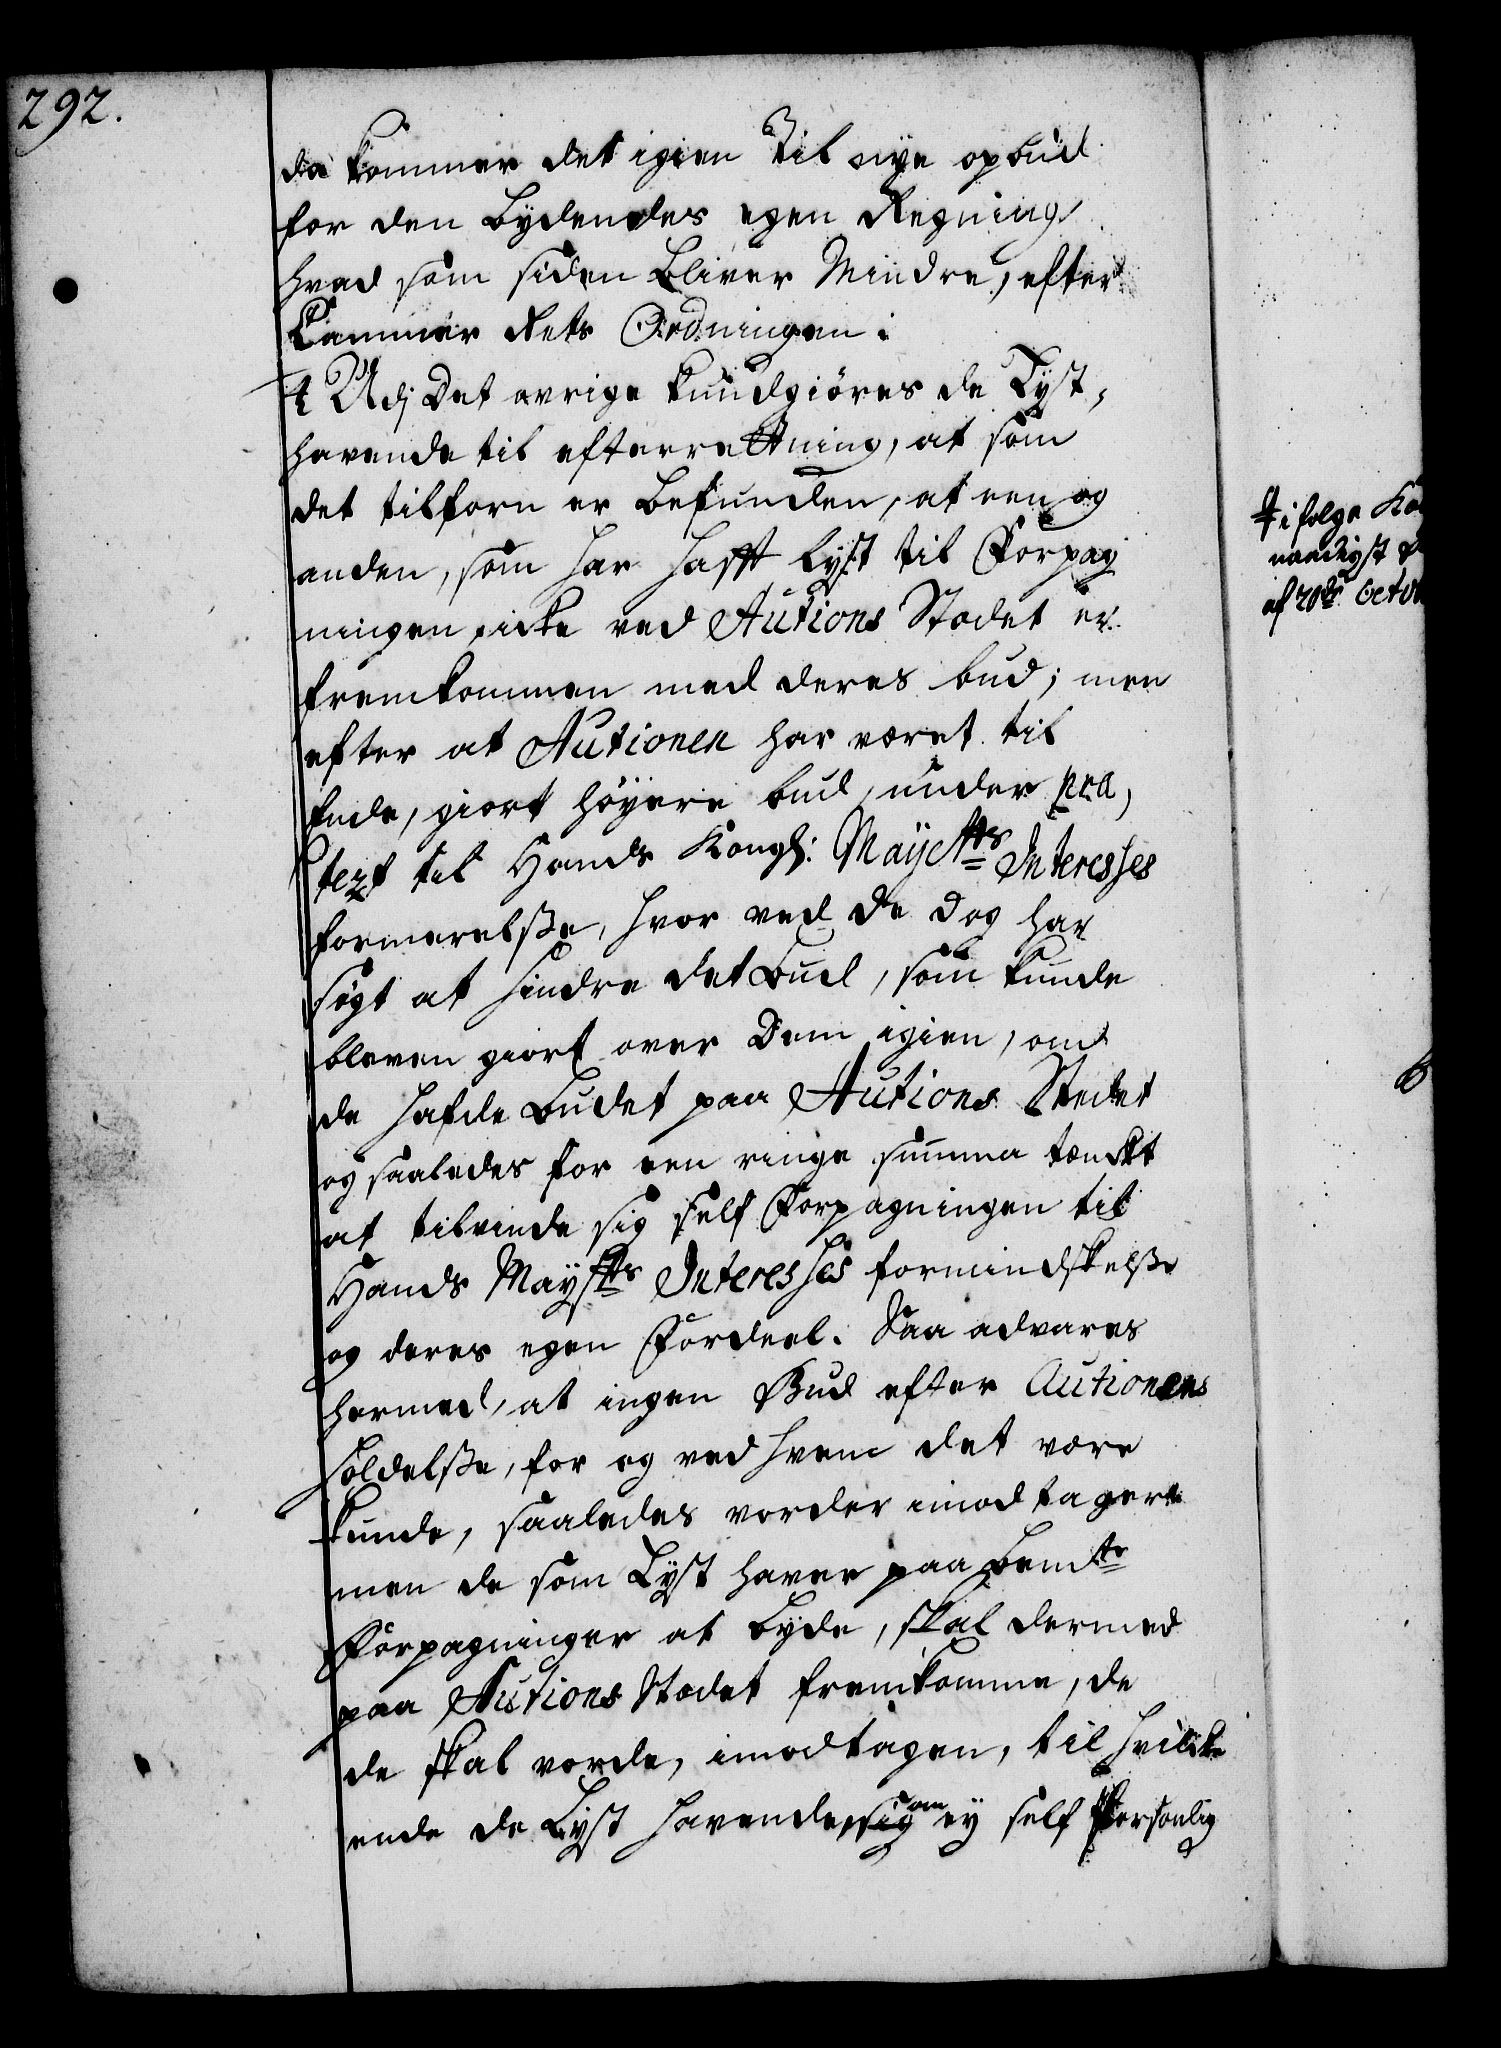 292.
da kommer det igien til nye opbud
for den Bydendes egen Regning
hvad som siden bliver Mindre, efter
Cammer Rets Ordningen:
4 Udj Det øvrige kundgiøres de Lyst,
havende til efterrettning, at som
det tilforn er befunden, at een og
anden, som har hafft lyst til Forpag
ningen, icke ved Autions Stædet er
fremkommen med deres bud; men
efter at Autionen har været til
Ende, giort høyere bud, under præ,
text til Hands Kongl: Mayestts Interesses
formerelsse, hvor ved de dog har
søgt at hindre det Bud, som kunde
bleven giort over Dem igien, om
de hafde Budet paa Autions Stedet
og saaledes for een ringe summa tænckt
at tilvinde sig self Forpagningen til
Hands Maystts Interesses formindskelsse
og deres egen Fordeel. Saa advares
hermed, at ingen Bud efter Autionens
holdelsse, for og ved hvem det være
kunde, saaledes vorder imodtagen
men de som Lyst haver paa bemte
Forpagninger at byde, skal dermed
paa Autions Stædet fremkomme, de
de skal vorde, imodtagen, til hvilcke
ende de Lyst havende, sig om ey self Persohnlig
i følge Ko
naadigst
af 20de Octob